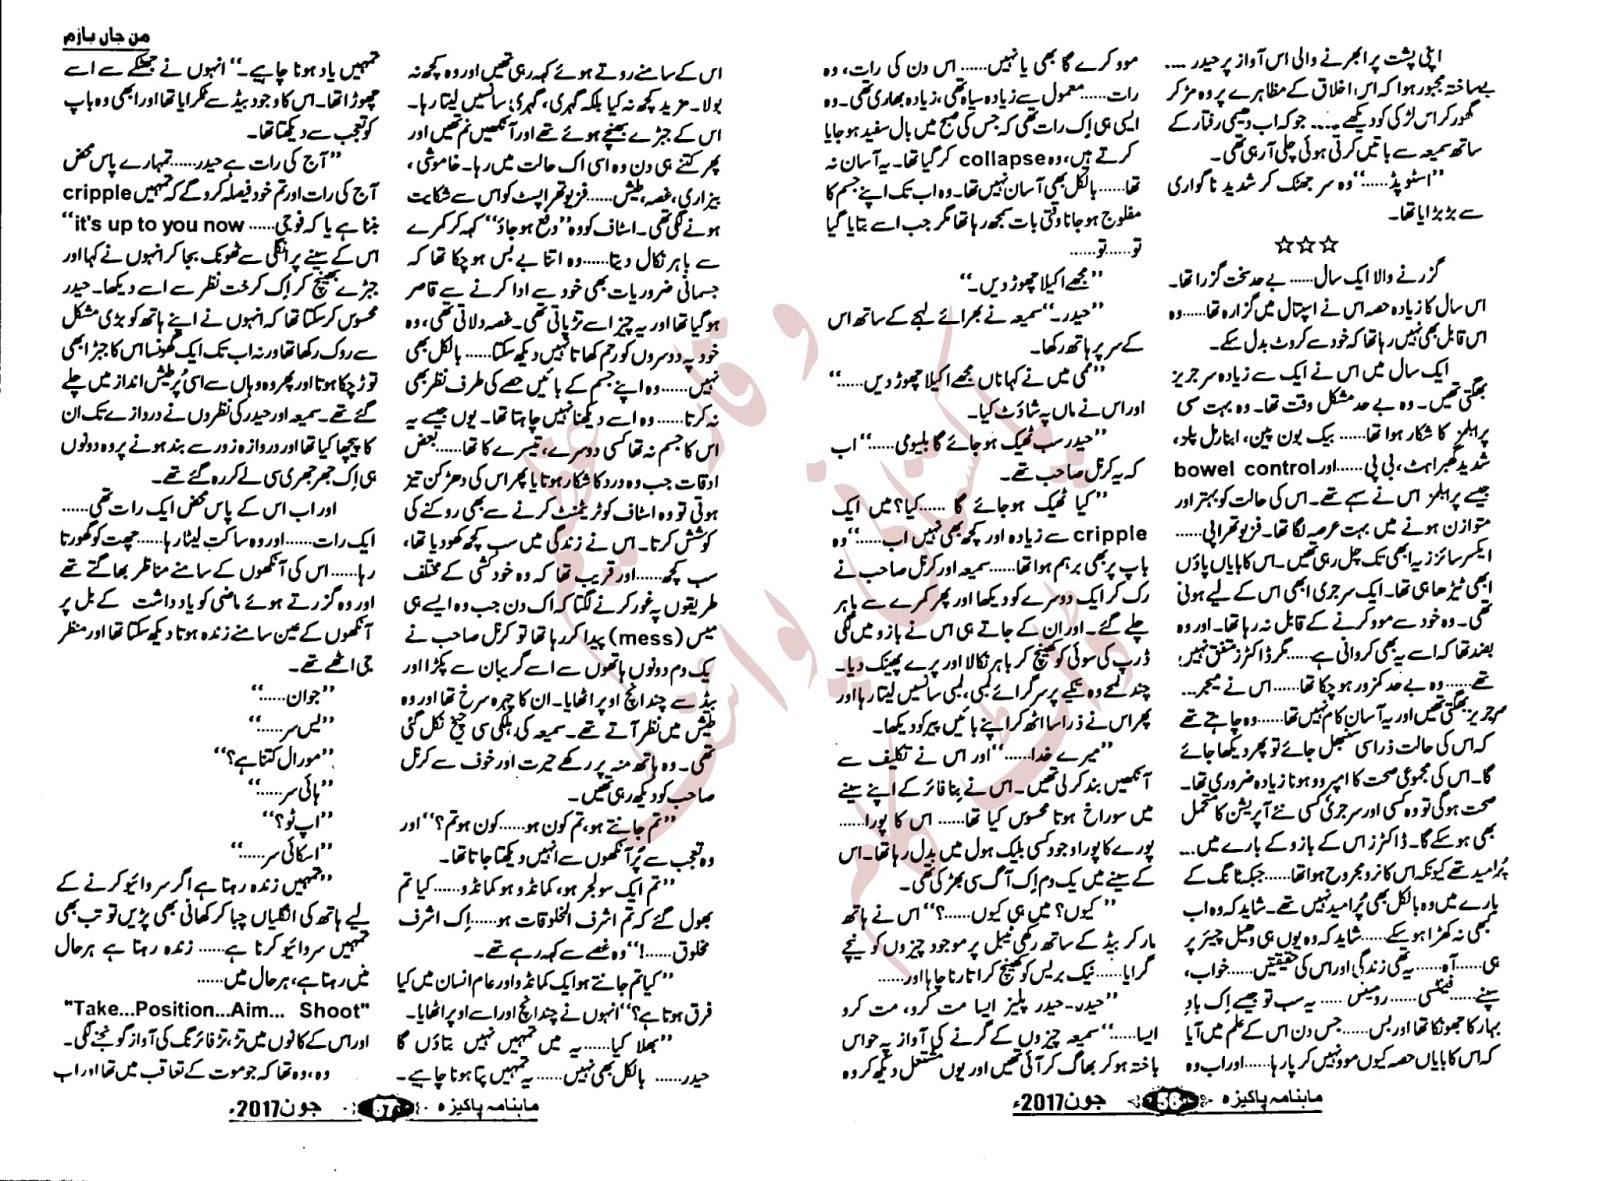 من جاں بازم
اپنی پشت پر ابھرنے والی اس آواز پر حیدر ....
بے ساختہ مجبور ہوا کہ اس اخلاق کے مظاہرے پر وہ مڑ کر
گھور کر اس لڑکی کو دیکھے .... جو کہ اب دھیمی رفتار کے
ساتھ سمیعہ سے باتیں کرتی ہوئی چلی آ رہی تھی۔
’’اسٹوپڈ......‘‘ وہ سر جھٹک کر شدید ناگواری
سے بڑبڑایا تھا۔
☆☆☆
گزرنے والا ایک سال...... بے حد سخت گزرا تھا۔
اس سال کا زیادہ حصہ اس نے اسپتال میں گزارہ تھا......وہ
اس قابل بھی نہیں رہا تھا کہ خود سے کروٹ بدل سکے۔
ایک سال میں اس نے ایک سے زیادہ سرجریز
بھگتی تھیں۔ وہ بے حد مشکل وقت تھا۔ وہ بہت سی
پرابلمز کا شکار ہوا تھا...... بیک بون پین، ابنارمل پلز،
شدید گھبراہٹ، بی پی......اور bowel control
جیسے پرابلمز اس نے سہے تھے۔ اس کی حالت کو بہتر اور
متوازن ہونے میں بہت عرصہ لگا تھا۔ فزیوتھراپی......
ایکسرسائزز یہ ابھی تک چل رہی تھیں۔ اس کا بایاں پاؤں
ابھی ٹیڑھا ہی تھا۔ ایک سرجری ابھی اس کے لیے ہونی
تھی۔ وہ خود سے موو کرنے کے قابل نہ رہا تھا۔ اور وہ
بضد تھا کہ اسے یہ بھی کروانی ہے......مگر ڈاکٹرز متفق نہیں
تھے......وہ بے حد کمزور ہو چکا تھا...... اس نے میجر...
سرجریز بھگتی تھیں اور یہ آسان کام نہیں تھا......وہ چاہتے تھے
کہ اس کی حالت ذرا سی سنبھل جائے تو پھر دیکھا جائے
گا۔ اس کی مجموعی صحت کا امپروو ہونا زیادہ ضروری تھا۔
صحت ہوگی تو وہ کسی اور سرجری کسی نئے آپریشن کا متحمل
بھی ہو سکے گا۔ ڈاکٹرز اس کے بازو کے بارے میں...
پُرامید تھے کیونکہ اس کا نرو مجروح ہوا تھا......جبکہ ٹانگ کے
بارے میں وہ بالکل بھی پُرامید نہیں تھے۔ شاید کہ وہ اب
کبھی نہ کھڑا ہو سکے......شاید کہ وہ یوں ہی وہیل چیئر پر
ہی......آہ......یہ تھی زندگی اور اس کی حقیقتیں......خواب،
سپنے...... فینٹسی...... رومینس ...... یہ سب تو جیسے اِک بادِ
بہار کا جھونکا تھا اور بس...... جس دن اس کے علم میں آیا
کہ اس کا بایاں حصہ کیوں موو نہیں کر پا رہا......اور اب وہ
موو کرے گا بھی یا نہیں...... اس دن کی رات، وہ
رات...... معمول سے زیادہ سیاہ تھی، زیادہ بھاری تھی۔ وہ
ایسی ہی اِک رات تھی کہ جس کی صبح میں بال سفید ہو جایا
کرتے ہیں، وہ collapse کر گیا تھا۔ یہ آسان نہ
تھا...... بالکل بھی آسان نہیں تھا۔ وہ اب تک اپنے جسم کا
مفلوج ہو جانا وقتی بات سمجھ رہا تھا مگر جب اسے بتایا گیا
تو......تو......
’’مجھے اکیلا چھوڑ دیں۔‘‘
’’حیدر۔‘‘ سمیعہ نے بھرائے لہجے کے ساتھ اس
کے سر پر ہاتھ رکھا۔
’’ممی میں نے کہا ناں مجھے اکیلا چھوڑ دیں......‘‘
اور اس نے ماں پہ شاؤٹ کیا۔
’’حیدر سب ٹھیک ہو جائے گا بلیوی......‘‘ اب
کہ یہ کرنل صاحب تھے۔
’’کیا ٹھیک ہو جائے گا ......کیا؟ میں ایک
cripple سے زیادہ اور کچھ بھی نہیں اب......‘‘ وہ
باپ پر بھی برہم ہوا تھا...... سمیعہ اور کرنل صاحب نے
رک کر ایک دوسرے کو دیکھا اور پھر کمرے سے باہر
چلے گئے۔ اور ان کے جاتے ہی اس نے بازو میں لگی
ڈرپ کی سوئی کو کھینچ کر باہر نکالا اور پرے پھینک دیا۔
چند لمحے وہ تکیے پر سر گرائے لمبی، لمبی سانسیں لیتا رہا اور
پھر اس نے ذرا سا اٹھ کر اپنے بائیں پیر کو دیکھا۔
’’میرے خدا......‘‘ اور اس نے تکلیف سے
آنکھیں بند کر لی تھیں۔ اس نے بِنا فائر کے اپنے سینے
میں سوراخ ہوتا محسوس کیا تھا...... اس کا پورا......
پورے کا پورا وجود کسی بلیک ہول میں بدل رہا تھا۔ اس
کے سینے میں یک دم اِک آگ سی بھڑکی تھی۔
’’کیوں؟ میں ہی کیوں......؟‘‘ اس نے ہاتھ
مار کر بیڈ کے ساتھ رکھی ٹیبل پر موجود چیزوں کو نیچے
گرایا...... نیک بریس کو کھینچ کر اتارنا چاہا اور......
’’حیدر۔ حیدر پلیز ایسا مت کرو، مت کرو
ایسا......‘‘ سمیعہ چیزوں کے گرنے کی آواز پہ حواس
باختہ ہو کر بھاگ کر آئی تھیں اور یوں مشتعل دیکھ کر وہ
ماہنامہ پاکیزہ 56 جون 2017ء
اس کے سامنے روتے ہوئے کہہ رہی تھیں اور وہ کچھ نہ
بولا۔ مزید کچھ نہ کیا بلکہ گہری، گہری سانسیں لیتا رہا۔
اس کے جبڑے بھنچے ہوئے تھے اور آنکھیں نم تھیں اور
پھر کتنے ہی دن وہ اسی اک حالت میں رہا۔ خاموشی،
بیزاری، غصہ، طیش...... فزیوتھراپسٹ کو اس سے شکایت
ہونے لگی تھی۔ اسٹاف کو وہ ’’دفع ہو جاؤ‘‘ کہہ کر کمرے
سے باہر نکال دیتا......وہ اتنا بے بس ہو چکا تھا کہ
جسمانی ضروریات بھی خود سے ادا کرنے سے قاصر
ہو گیا تھا اور یہ چیز اسے تڑپاتی تھی۔ غصہ دلاتی تھی، وہ
خود پہ دوسروں کو رحم کھاتا نہیں دیکھ سکتا...... بالکل بھی
نہیں......وہ اپنے جسم کے بائیں حصے کی طرف نظر بھی
نہ کرتا......وہ اسے دیکھنا نہیں چاہتا تھا۔ یوں جیسے یہ
اس کا جسم نہ تھا کسی دوسرے، تیسرے کا تھا...... بعض
اوقات جب وہ درد کا شکار ہوتا یا پھر اس کی دھڑکن تیز
ہوتی تو وہ اسٹاف کو ٹریٹمنٹ کرنے سے بھی روکنے کی
کوشش کرتا۔ اس نے زندگی میں سب کچھ کھو دیا تھا،
سب کچھ......اور قریب تھا کہ وہ خودکشی کے مختلف
طریقوں پہ غور کرنے لگتا کہ اک دن جب وہ ایسے ہی
میس (mess) پیدا کر رہا تھا تو کرنل صاحب نے
یک دم دونوں ہاتھوں سے اسے گریبان سے پکڑا اور
بیڈ سے چند انچ اوپر اٹھایا۔ ان کا چہرہ سرخ تھا اور وہ
طیش میں نظر آتے تھے۔ سمیعہ کی ہلکی سی چیخ نکل گئی
تھی۔ وہ ہاتھ منہ پر رکھے حیرت اور خوف سے کرنل
صاحب کو دیکھ رہی تھیں۔
’’تم جانتے ہو، تم کون ہو......کون ہو تم؟‘‘ اور
وہ تعجب سے پُر آنکھوں سے انہیں دیکھتا جاتا تھا۔
’’تم ایک سولجر ہو، کمانڈو ہو کمانڈو...... کیا تم
بھول گئے کہ تم اشرف المخلوقات ہو......اِک اشرف
مخلوق......!‘‘ وہ غصے سے کہہ رہے تھے۔
’’کیا تم جانتے ہو ایک کمانڈو اور عام انسان میں کیا
فرق ہوتا ہے؟‘‘ انہوں نے چند انچ اور اسے اوپر اٹھایا۔
’’بھلا کیا...... یہ میں تمہیں نہیں بتاؤں گا
حیدر...... بالکل بھی نہیں...... یہ تمہیں پتا ہونا چاہیے۔
تمہیں یاد ہونا چاہیے۔‘‘ انہوں نے جھٹکے سے اسے
چھوڑا تھا۔ اس کا وجود بیڈ سے ٹکرایا تھا اور ابھی وہ باپ
کو تعجب سے دیکھتا تھا۔
’’آج کی رات ہے حیدر...... تمہارے پاس محض
آج کی رات اور تم خود فیصلہ کرو گے کہ تمہیں cripple
بننا ہے یا کہ فوجی...... it's up to you now‘‘
اس کے سینے پر انگلی سے ٹھونک بجا کر انہوں نے کہا اور
جبڑے بھینچ کر اِک کرخت نظر سے اسے دیکھا۔ حیدر
محسوس کر سکتا تھا کہ انہوں نے اپنے ہاتھ کو بڑی مشکل
سے روک رکھا تھا ورنہ اب تک ایک گھونسا اس کا جبڑا بھی
توڑ چکا ہوتا اور پھر وہ وہاں سے اسی پُرطیش انداز میں چلے
گئے تھے۔ سمیعہ اور حیدر کی نظروں نے دروازے تک ان
کا پیچھا کیا تھا اور دروازہ زور سے بند ہونے پر وہ دونوں
ہی اِک جھرجھری سی لے کر رہ گئے تھے۔
اور اب اس کے پاس محض ایک رات تھی......
ایک رات......اور وہ ساکت لیٹا رہا......چھت کو گھورتا
رہا...... اس کی آنکھوں کے سامنے مناظر بھاگتے تھے
اور وہ گزرتے ہوئے ماضی کو یادداشت کے بل پر
آنکھوں کے عین سامنے زندہ ہوتا دیکھ سکتا تھا اور منظر
جی اٹھے تھے۔
’’جوان......‘‘
’’یس سر......‘‘
’’مورال کتنا ہے؟‘‘
’’ہائی سر......‘‘
’’اپ ٹو؟‘‘
’’اسکائی سر......‘‘
’’تمہیں زندہ رہنا ہے اگر سروائیو کرنے کے
لیے ہاتھ کی انگلیاں چبا کر کھانی بھی پڑیں تو تب بھی
تمہیں سروائیو کرنا ہے...... زندہ رہنا ہے ہر حال
میں رہنا ہے، ہر حال میں......
"Take...Position...Aim... Shoot"
اور اس کے کانوں میں تڑ، تڑ فائرنگ کی آواز گونجنے لگی۔
وہ، وہ تھا کہ جو موت کے تعاقب میں تھا اور اب
ماہنامہ پاکیزہ 57 جون 2017ء